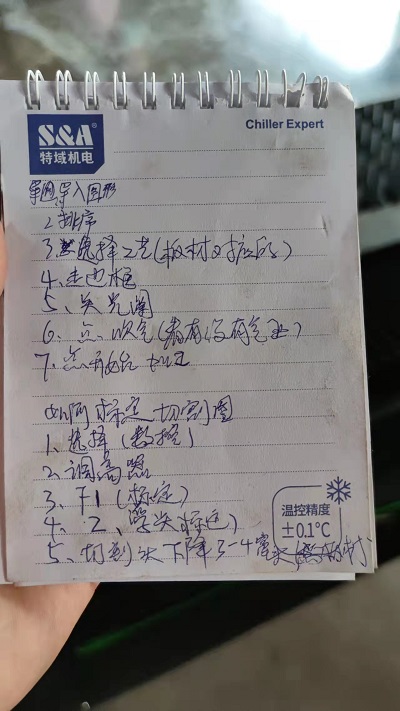 S&A®
特域机电
Chiller Expert
导入图形
2 排序
3、选择工艺(板材对应的)
4、走边框
5、关光闸
6、点、吹气(看有没有气压)
7、点开始加工
如何标定切割图
1、选择(数控)
2、调高器
3、F1(标定)
4、2、浮头标定)
5、切割头下降3-4毫米
温控精度
±0.1°C